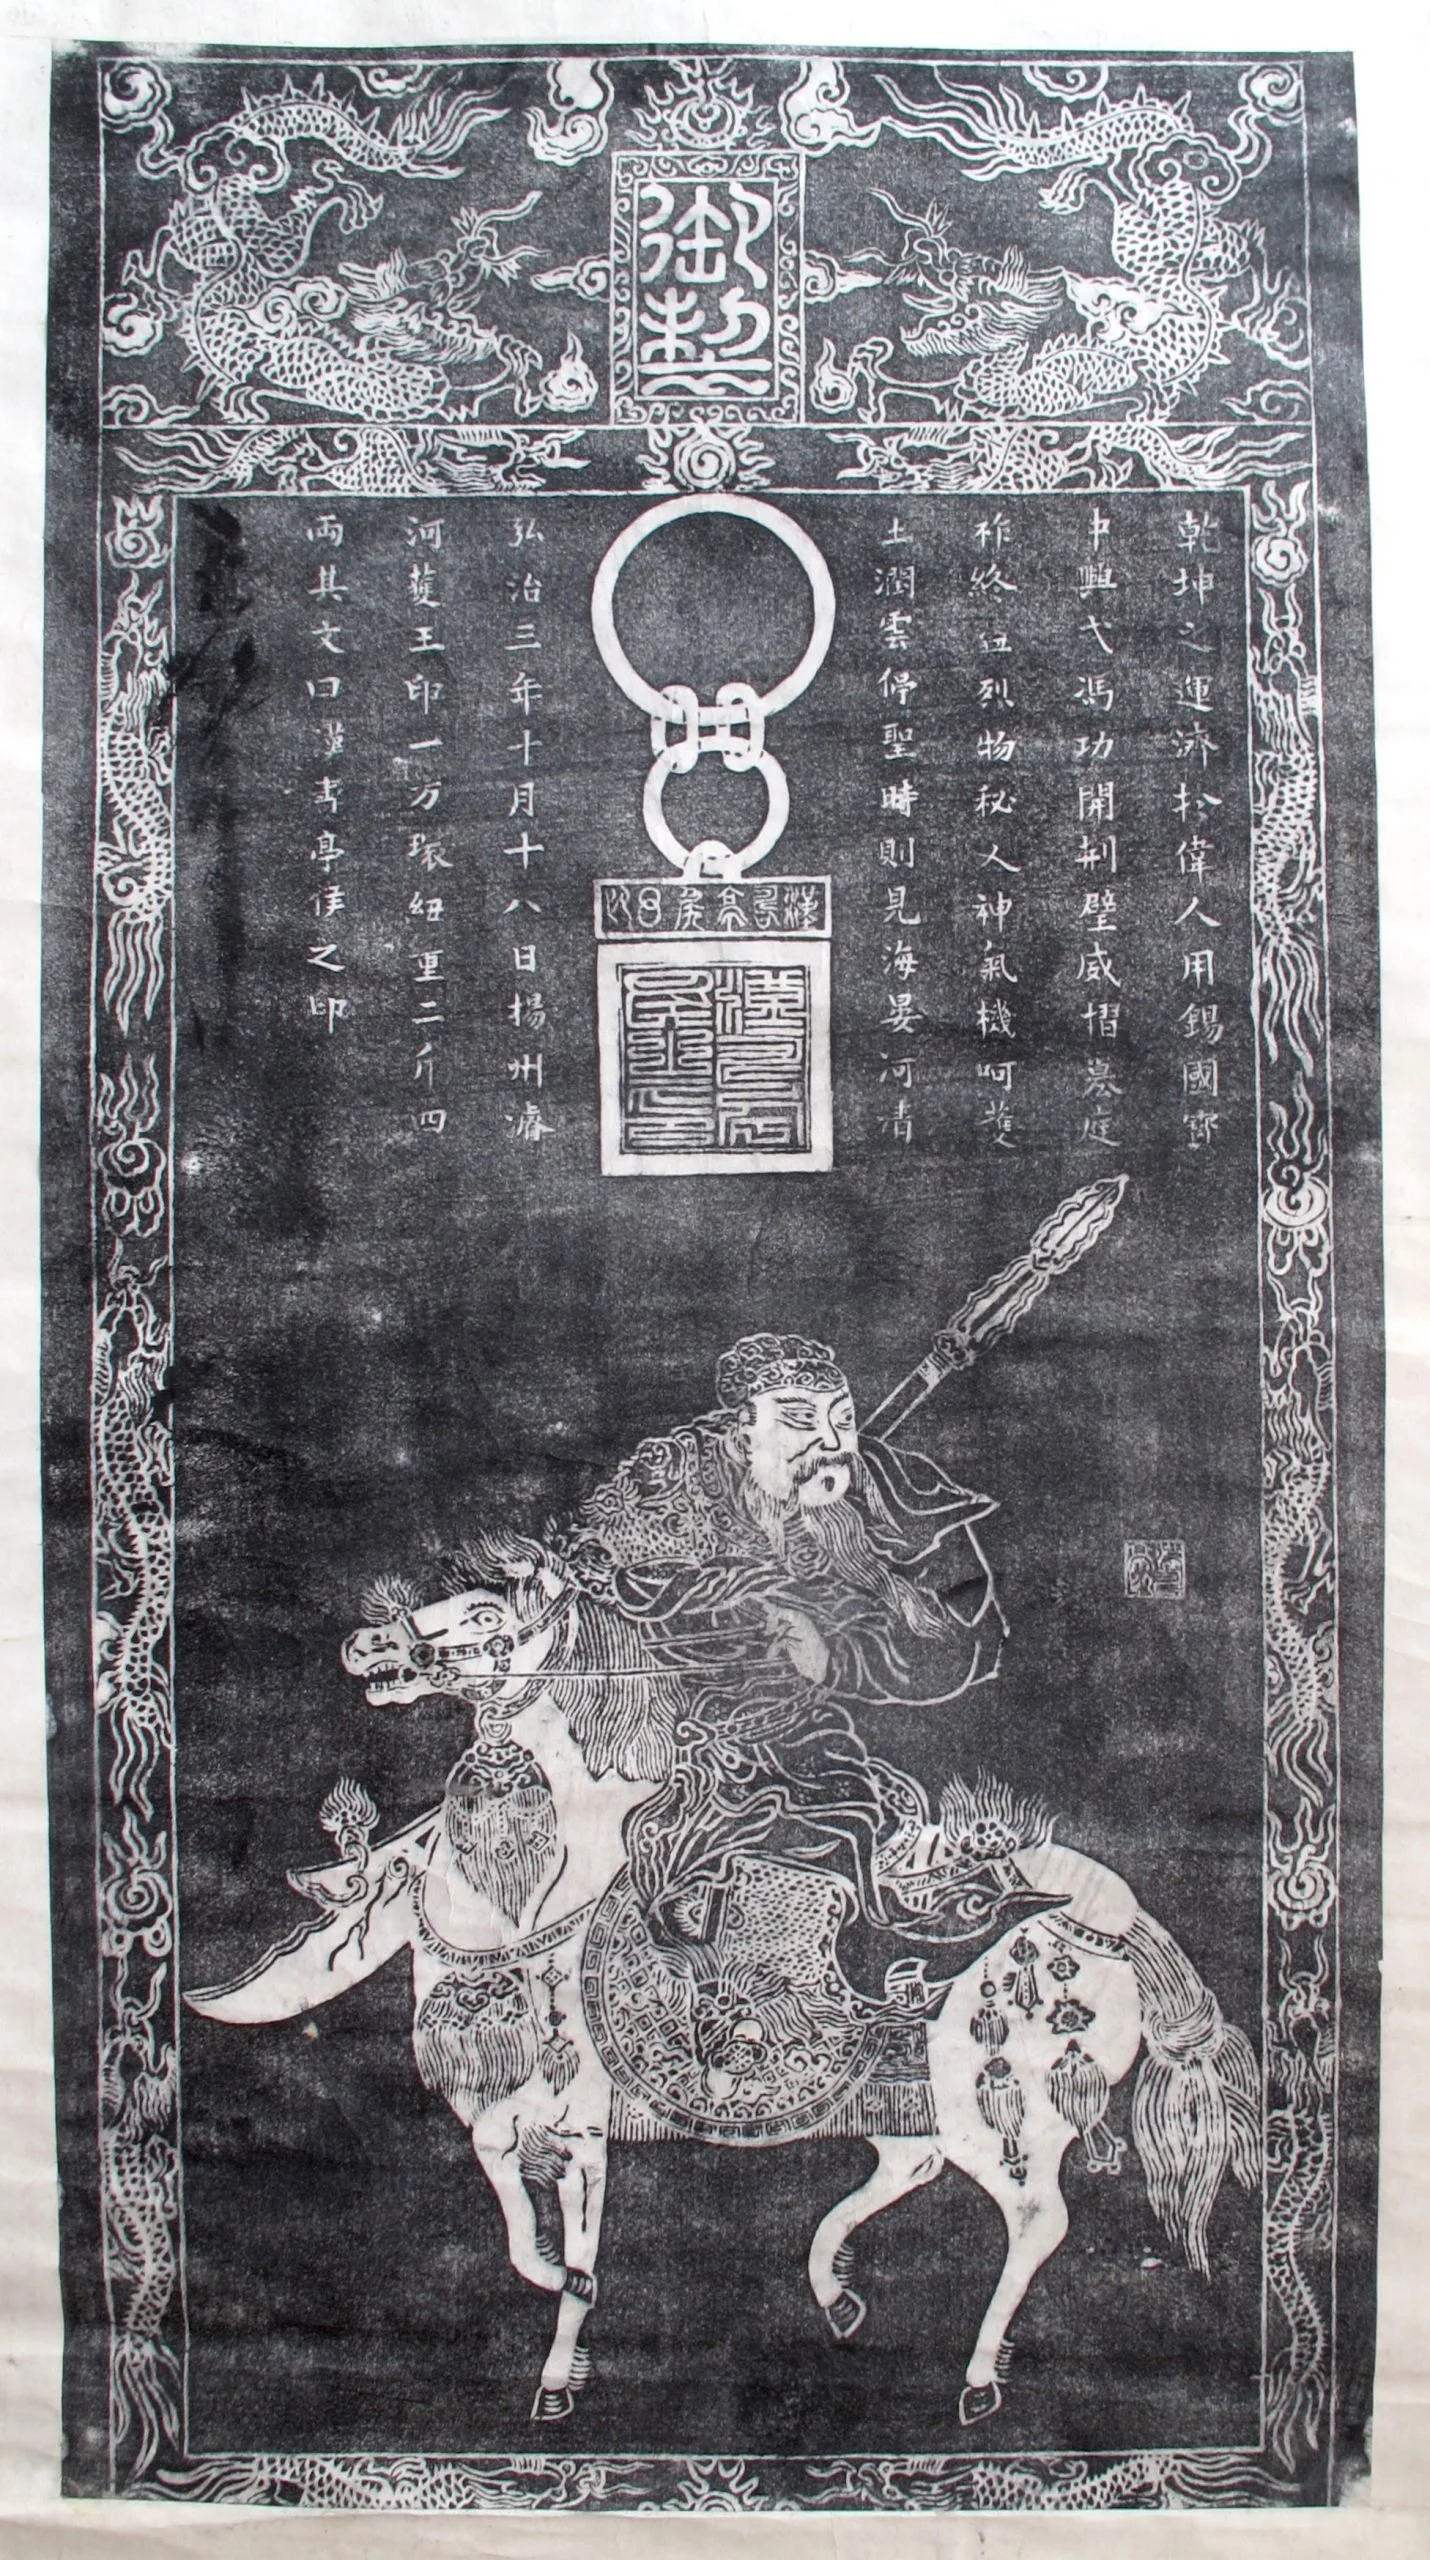 御製
乾坤之運濟於偉人用錫國寶
中興弋馮功開荆壁威摺蒙庭
祚終五烈物秘人神氣機呵護
土潤雲停聖時則見海晏河清
漢壽亭侯之印
弘治三年十月十八日揚州濬
河獲王印一方環紐重二斤四
両其文曰漢壽亭侯之印